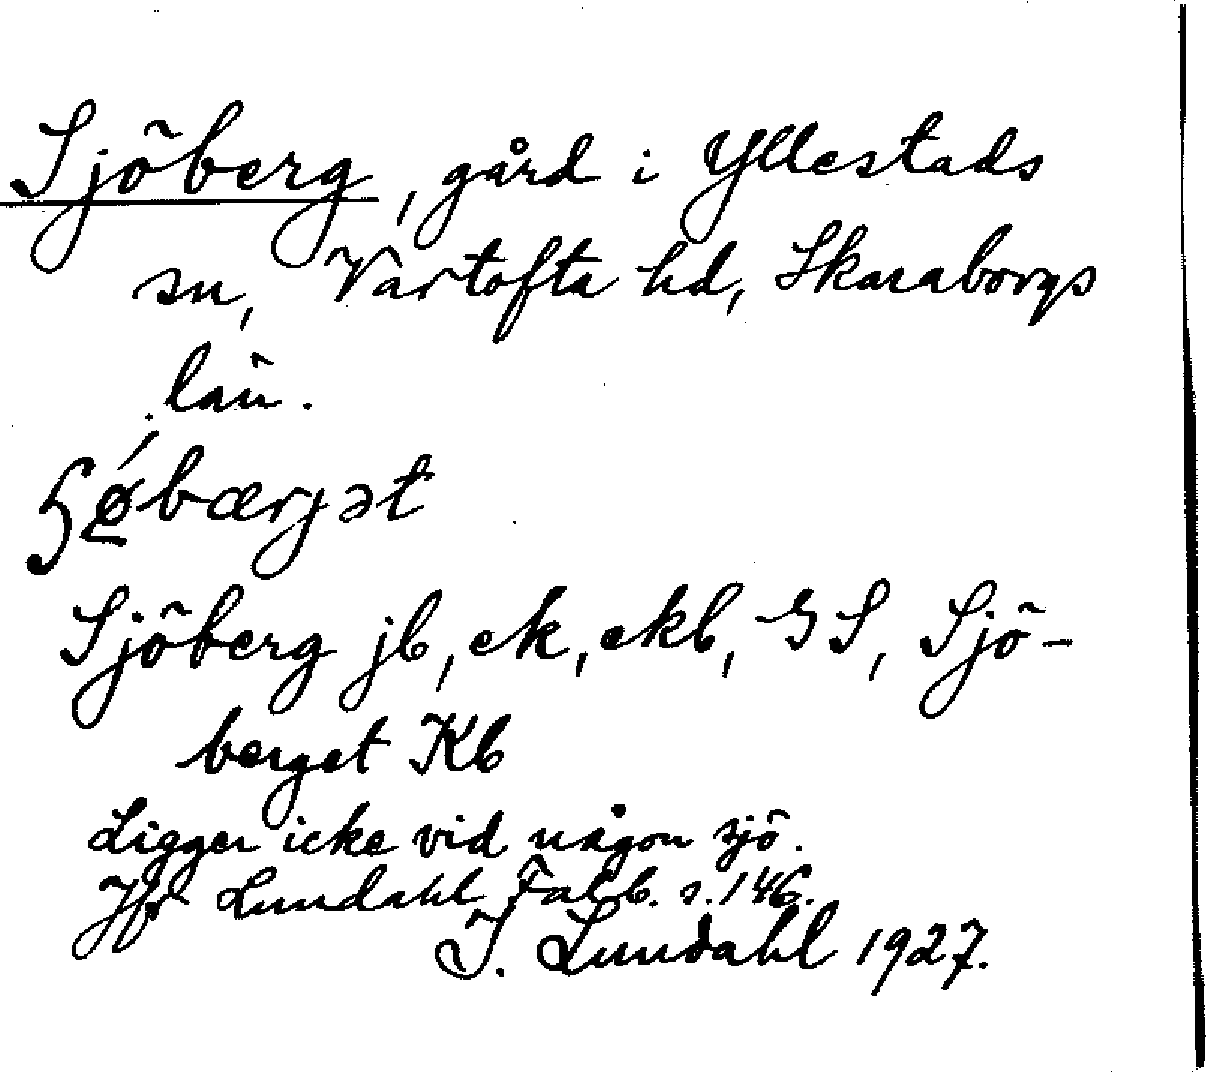 Sjöberg, gård i Yllestads
sn, Vartofta hd, Skaraborgs
län.
bærjət
Sjöberg jb, ek, ekb, GS, Sjö-
berget Kb
Ligger icke vid någon sjö.
Jfr Lundahl Falb. s. 146.
I. Lundahl 1927.